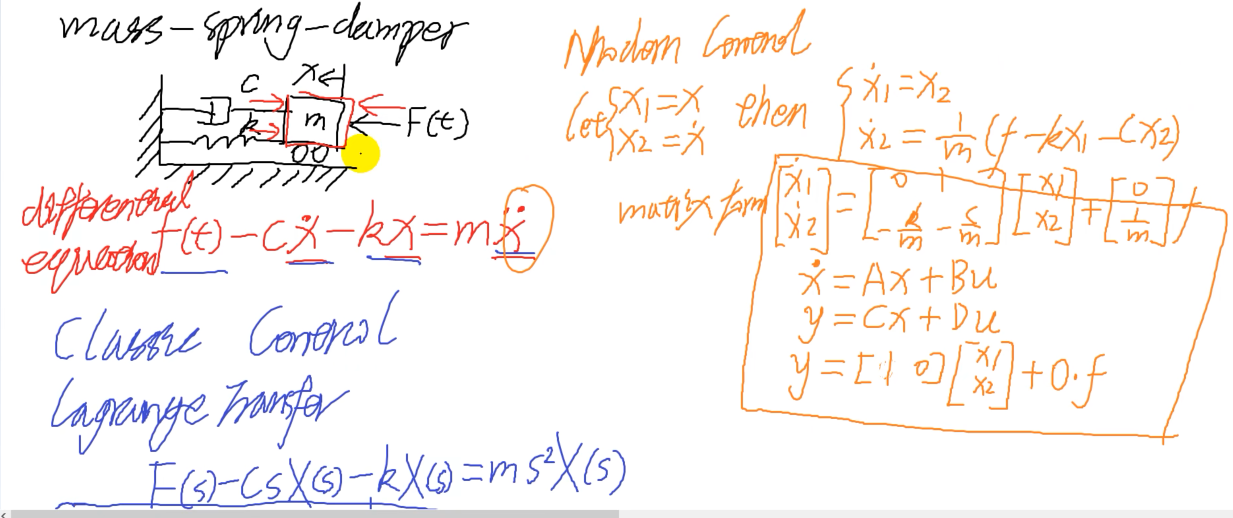 mass-spring-damper
C
X
k
m
F(t)
differential
equation
f(t) - cẋ - kx = mẍ
Classic Control
Lagrange Transfer
F(s) - CsX(s) - kX(s) = ms²X(s)
Modern Control
Let { x₁ = x
x₂ = ẋ
then { ẋ₁ = x₂
ẋ₂ = 1/m (f - kx₁ - Cx₂)
matrix form [ẋ₁ ẋ₂] = [0 1; -k/m -c/m] [x₁ x₂] + [0 1/m] f
ẋ = Ax + Bu
y = Cx + Du
y = [1 0] [x₁ x₂] + 0·f